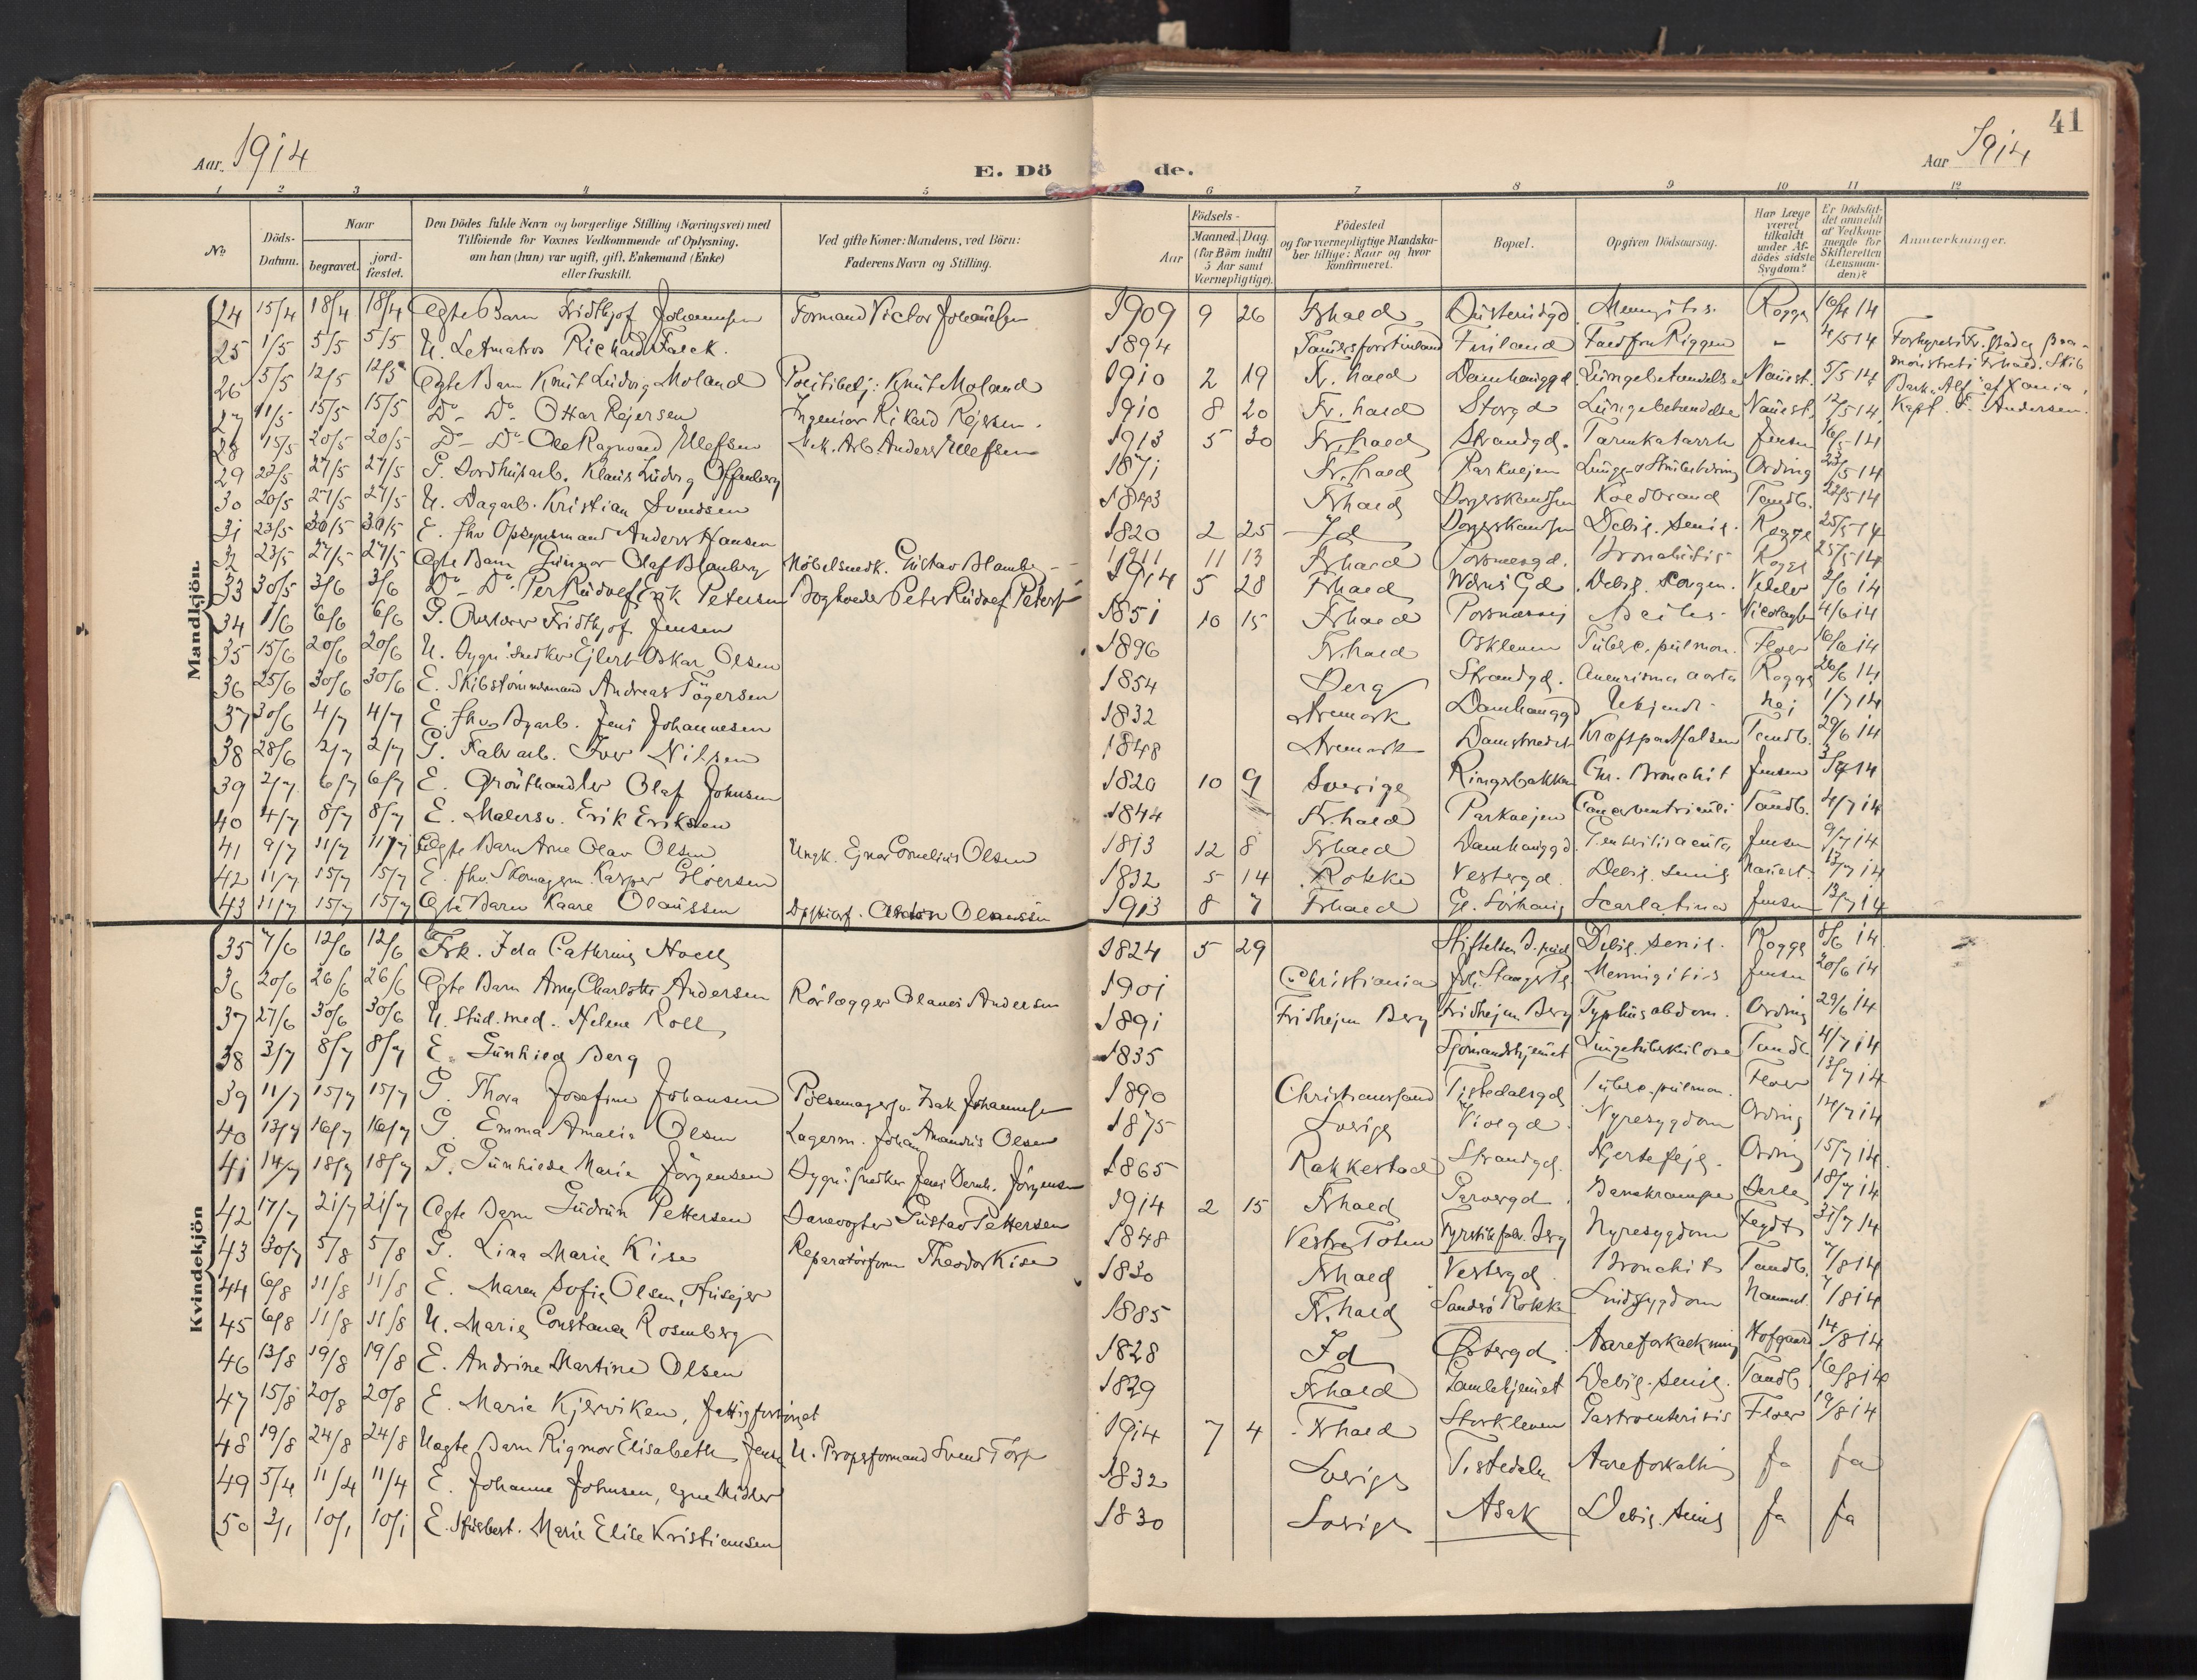 41
Aar 1914
E. Döde.
Aar 1914
1 2 3 4 5 6 7 8 9 10 11 12
No
Döds-Datum.
Naar
begravet.
jord-fæstet.
Den Dödes fulde Navn og borgerlige Stilling (Næringsvei) med
Tilföiende for Voxnes Vedkommende af Oplysning,
om han (hun) var ugift, gift, Enkemand (Enke)
eller fraskilt.
Ved gifte Koner: Mandens, ved Börn:
Faderens Navn og Stilling.
Födsels-
Aar
Maaned. Dag.
(for Börn indtil
5 Aar samt
Værnepligtige).
Födested
og for værnepligtige Mandska-
ber tillige: Naar og hvor
konfirmeret.
Bopæl.
Opgiven Dödsaarsag.
Har Læge
været
tilkaldt
under Af-
dödes sidste
Sygdom?
Er Dödsfal-
det anmeldt
af Vedkom-
mende for
Skifteretten
(Lensman-
den)?
Anmærkninger.
Mandkjön.
24 15/4 18/4 18/4 Ægte Barn Fridthjof Johannsen Formand Victor Johannsen 1909 9 26 Frhald Meningitis. Rogge 16/4 14
25 1/5 5/5 5/5 U. Letmatros Richard Falck. 1894 Finland Fald fra Riggen - 4/5 14
26 5/5 12/5 12/5 Ægte Barn Knut Ludvig Moland Politibetj: Knut Moland 1910 2 19 Fr.hald Damhauggd. Lungebetændelse 5/5 14 Bark. "Alf" af Xania,
27 11/5 15/5 15/5 Do - Do Ottar Rejersen Ingeniør Rikard Rejersen. 1910 8 20 Fr.hald Storgd Lungebetændelse 12/5 14 Kapt. F. Andersen.
28 15/5 20/5 20/5 Do - Do Ole Ragnvald Ulefsen Mek. Arb. Anders Ulefsen 1913 5 30 Fr.hald Strandgd. Tarmkatarrh Jensen 16/5 14
29 22/5 27/5 27/5 G. Klaus Ludvig Offenberg 1871 Fr.hald Parkvejen Ording 23/5 14
30 20/5 27/5 27/5 U. Dagarb. Kristian Svendsen 1843 Frhald Koldbrand Tandb. 22/5 14
31 23/5 30/5 30/5 E. fhv. Opsynsmand Anders Hansen 1820 2 25 Id Debil. senil. Rogge 25/5 14
32 23/5 27/5 27/5 Ægte Barn Gunnar Olaf Blomberg Möbelsnedk. Gustav Blomberg 1911 11 13 Frhald Bronchitis Rogge 25/5 14
33 30/5 3/6 3/6 Do - Do Per Rudolf Petersen Bogholder Peter Rudolf Petersen 1914 5 28 Frhald Debil. congen. 2/6 14
34 1/6 6/6 6/6 G. Fridthjof Jensen 1851 10 15 Frhald 4/6 14
35 15/6 20/6 20/6 U. Bygn. Snedker Ejlert Oskar Olsen 1896 Fr.hald Oskleven Tuberc. pulmon. Floer 16/6 14
36 25/6 30/6 30/6 E. Skibstömmermand Andreas Tögersen 1854 Berg Strandgd. Aneurisma aorta Rogge 26/6 14
37 30/6 4/7 4/7 E. fhv. Byarb. Jens Johannesen 1832 Aremark Damhauggd Ukjendt nej 1/7 14
38 28/6 2/7 2/7 G. Fabr.arb. Iver Nilsen 1848 Aremark Damstrædet Tandb. 29/6 14
39 2/7 6/7 6/7 E. Grönthandler Olaf Johnsen 1820 10 9 Sverige Ringsbakken Chr. Bronchit Jensen 3/7 14
40 4/7 8/7 8/7 E. Malersv. Erik Eriksen 1844 Fr.hald Parkvejen Cancer ventriculi Tandb. 4/7 14
41 9/7 11/7 11/7 Ægte Barn Arne Olav Olsen Ejnar Cornelius Olsen 1813 12 8 Frhald Damhauggd Jensen 9/7 14
42 11/7 15/7 15/7 E. fhv. Skomagerm. Kasper Glöersen 1832 5 14 Rokke Vestergd. Debil. senil 13/7 14
43 11/7 15/7 15/7 Ægte Barn Kaare Olaussen Olaussen 1913 8 7 Frhald Scarlatina Jensen 13/7 14
Kvindekjön
35 7/6 12/6 12/6 Frk. Ida Cathrine Noell 1824 5 29 Debil. senil. Rogge 8/6 14
36 20/6 26/6 26/6 Ægte Barn Amy Charlotte Andersen Rörlægger Olaues Andersen 1901 Christiania Meningitis Jensen 20/6 14
37 27/6 30/6 30/6 U. Stud.med. Helene Roll 1891 Fridhejm Berg Fridhejm Berg Typhus abdom. Ording 29/6 14
38 3/7 8/7 8/7 E. Gunhild Berg 1835 Sjömandshjemmet Lungetuberkulose Tandb 4/7 14
39 11/7 15/7 15/7 G. Thora Josefine Johansen Pölsemagersv. Isak Johannsen 1890 Christianssand Tistedalsgd Tuberc. pulmon. Floer 13/7 14
40 13/7 16/7 16/7 G. Emma Amalie Olsen Lagerm. Johan Amandus Olsen 1875 Sverige Violgd. Nyresygdom Ording 14/7 14
41 14/7 18/7 18/7 G. Gunhilde Marie Jörgensen Bygn. Snedker Jens Bernh. Jörgensen 1865 Rakkestad Strandgd. Hjertefejl. Ording 15/7 14
42 17/7 21/7 21/7 Ægte Barn Gudrun Pettersen Banevogter Gustav Pettersen 1914 2 15 Frhald Garvergd. Barnekrampe 18/7 14
43 30/7 5/8 5/8 G. Lina Marie Kise Theodor Kise 1848 Vestre Toten Fyrstikfabr. Berg Nyresygdom 31/7 14
44 6/8 11/8 11/8 E. Maren Sofie Olsen, Husejer 1830 Frhald Vestergd. Bronchit Tandb. 7/8 14
45 6/8 11/8 11/8 U. Marie Constance Rosenberg 1885 Fr.hald Sandsö Rokke 7/8 14
46 13/8 19/8 19/8 E. Andrine Martine Olsen 1828 Id Östergd. Aareforkalkning Hofgaard 14/8 14
47 15/8 20/8 20/8 E. Marie Kjerviken, fattigforsörget 1829 Frhald Gamlehjemmet Debil. senil. Tandb. 16/8 14
48 19/8 24/8 24/8 Uægte Barn Rigmor Elisabeth Jensen U. Svend Torp 1914 7 4 Frhald Storkleven Gastroenteritis Floer 19/8 14
49 5/4 11/4 11/4 E. Johanne Johnsen, egne Midler 1832 Sverige Tistedalen Aareforkalkn ja ja
50 3/1 10/1 10/1 E. Marie Elise Kristiansen 1830 Sverige Asak Debil. senil ja ja